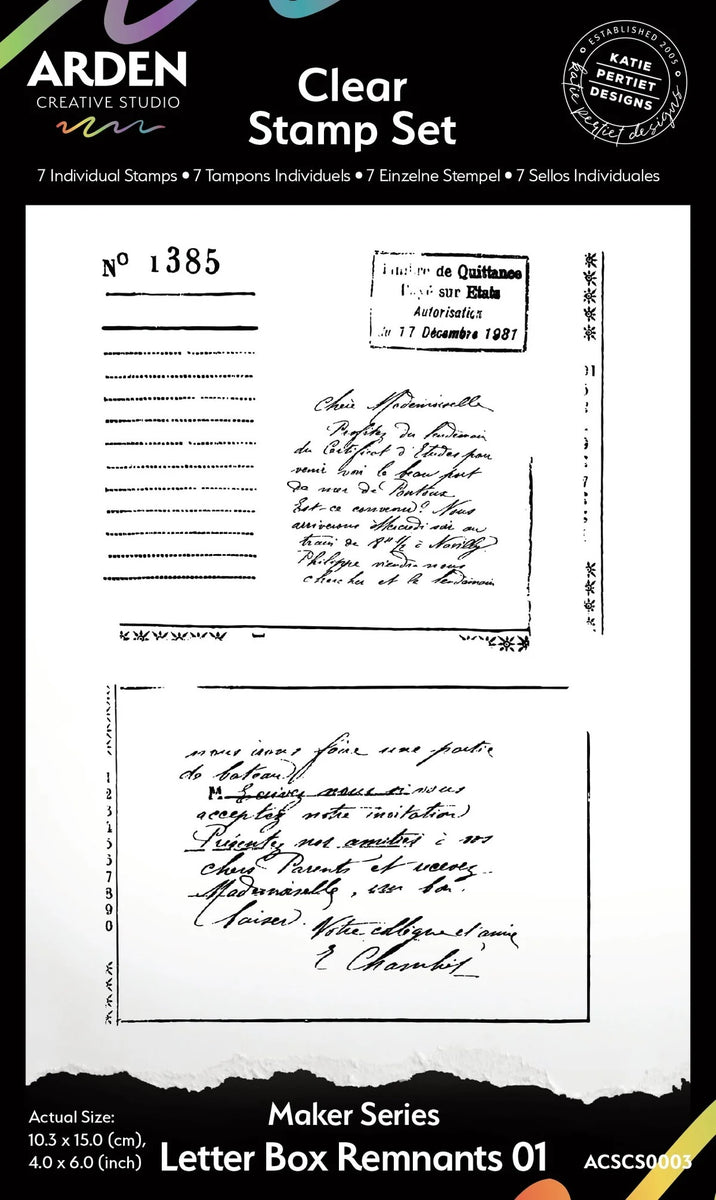 ARDEN
CREATIVE STUDIO
Clear
Stamp Set
ESTABLISHED 2005
KATIE
PERTIET
DESIGNS
katie pertiet designs
7 Individual Stamps • 7 Tampons Individuels • 7 Einzelne Stempel • 7 Sellos Individuales
No 1385
de Quittance
sur Etats
Autorisation
du 17 Décembre 1981
Chère Mademoiselle
Profitez du lendemain
du Certificat d'Etudes pour
venir voir le beau port
de mer de Pontoux
Est-ce convenu? Nous
arriverons Mercredi soir au
train de 8h ½ à Navilly
Philippe viendra nous
chercher et le lendemain
nous irons faire une partie
de bateau
M. Ecrivez nous si vous
acceptez notre invitation
Présentez nos amitiés à vos
chers Parents et recevez
Mademoiselle, un bon
baiser.
Votre collègue et amie
E
1
2
3
4
5
6
7
8
9
0
Actual Size:
10.3 x 15.0 (cm),
4.0 x 6.0 (inch)
Maker Series
Letter Box Remnants 01
ACSCS0003